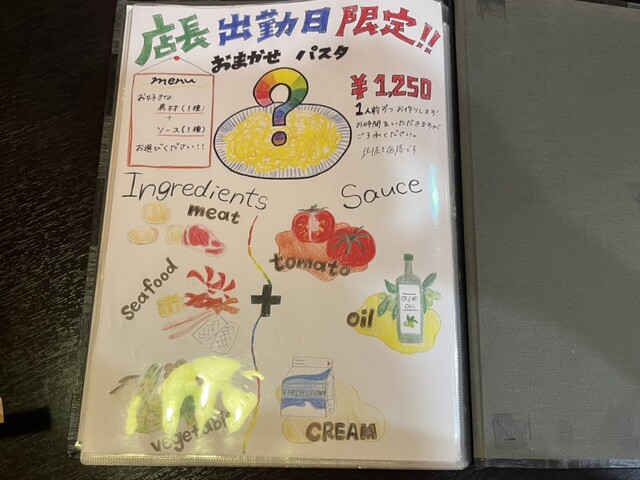 店長 出勤日 限定!!
おまかせ パスタ
menu
お好きな
具材(1種)
+
ソース(1種)
お選びください!!
?
¥1,250
1人前ずつお作りします!
お時間をいただきますが
ご了承ください。
Ingredients
Sauce
meat
tomato
seafood
+
OLIVE
OIL
oil
vegetable
FRESH CREAM
CREAM